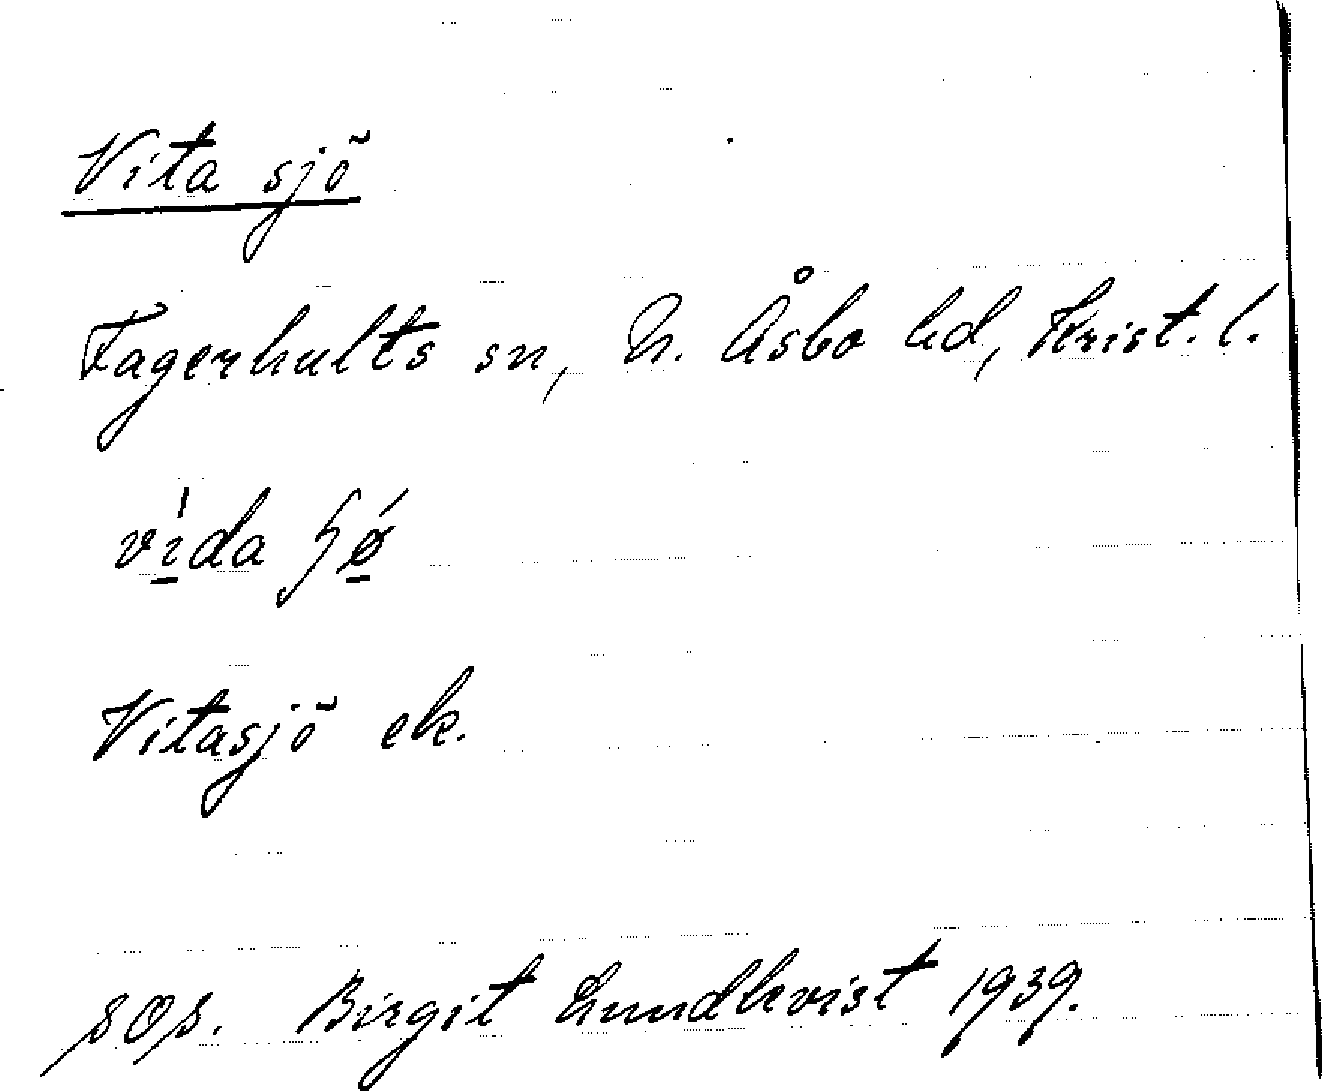 Vita sjö
Fagerhults sn, N. Åsbo hd, Krist. l.
vida ɧø
Vitasjö ek.
sos. Birgit Lundkvist 1939.